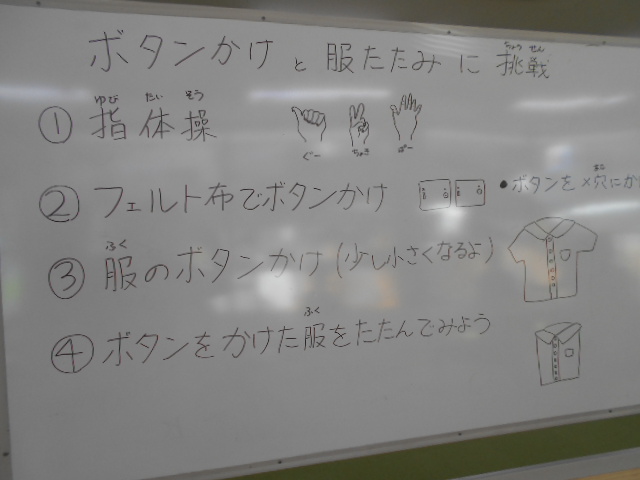 ボタンかけと服たたみに挑戦
ちょうせん
ゆび たい そう
① 指体操
ぐー ちょき ぱー
② フェルト布でボタンかけ ・ボタンを×穴にか
あな
ふく
③ 服のボタンかけ(少し小さくなるよ)
ふく
④ ボタンをかけた服をたたんでみよう